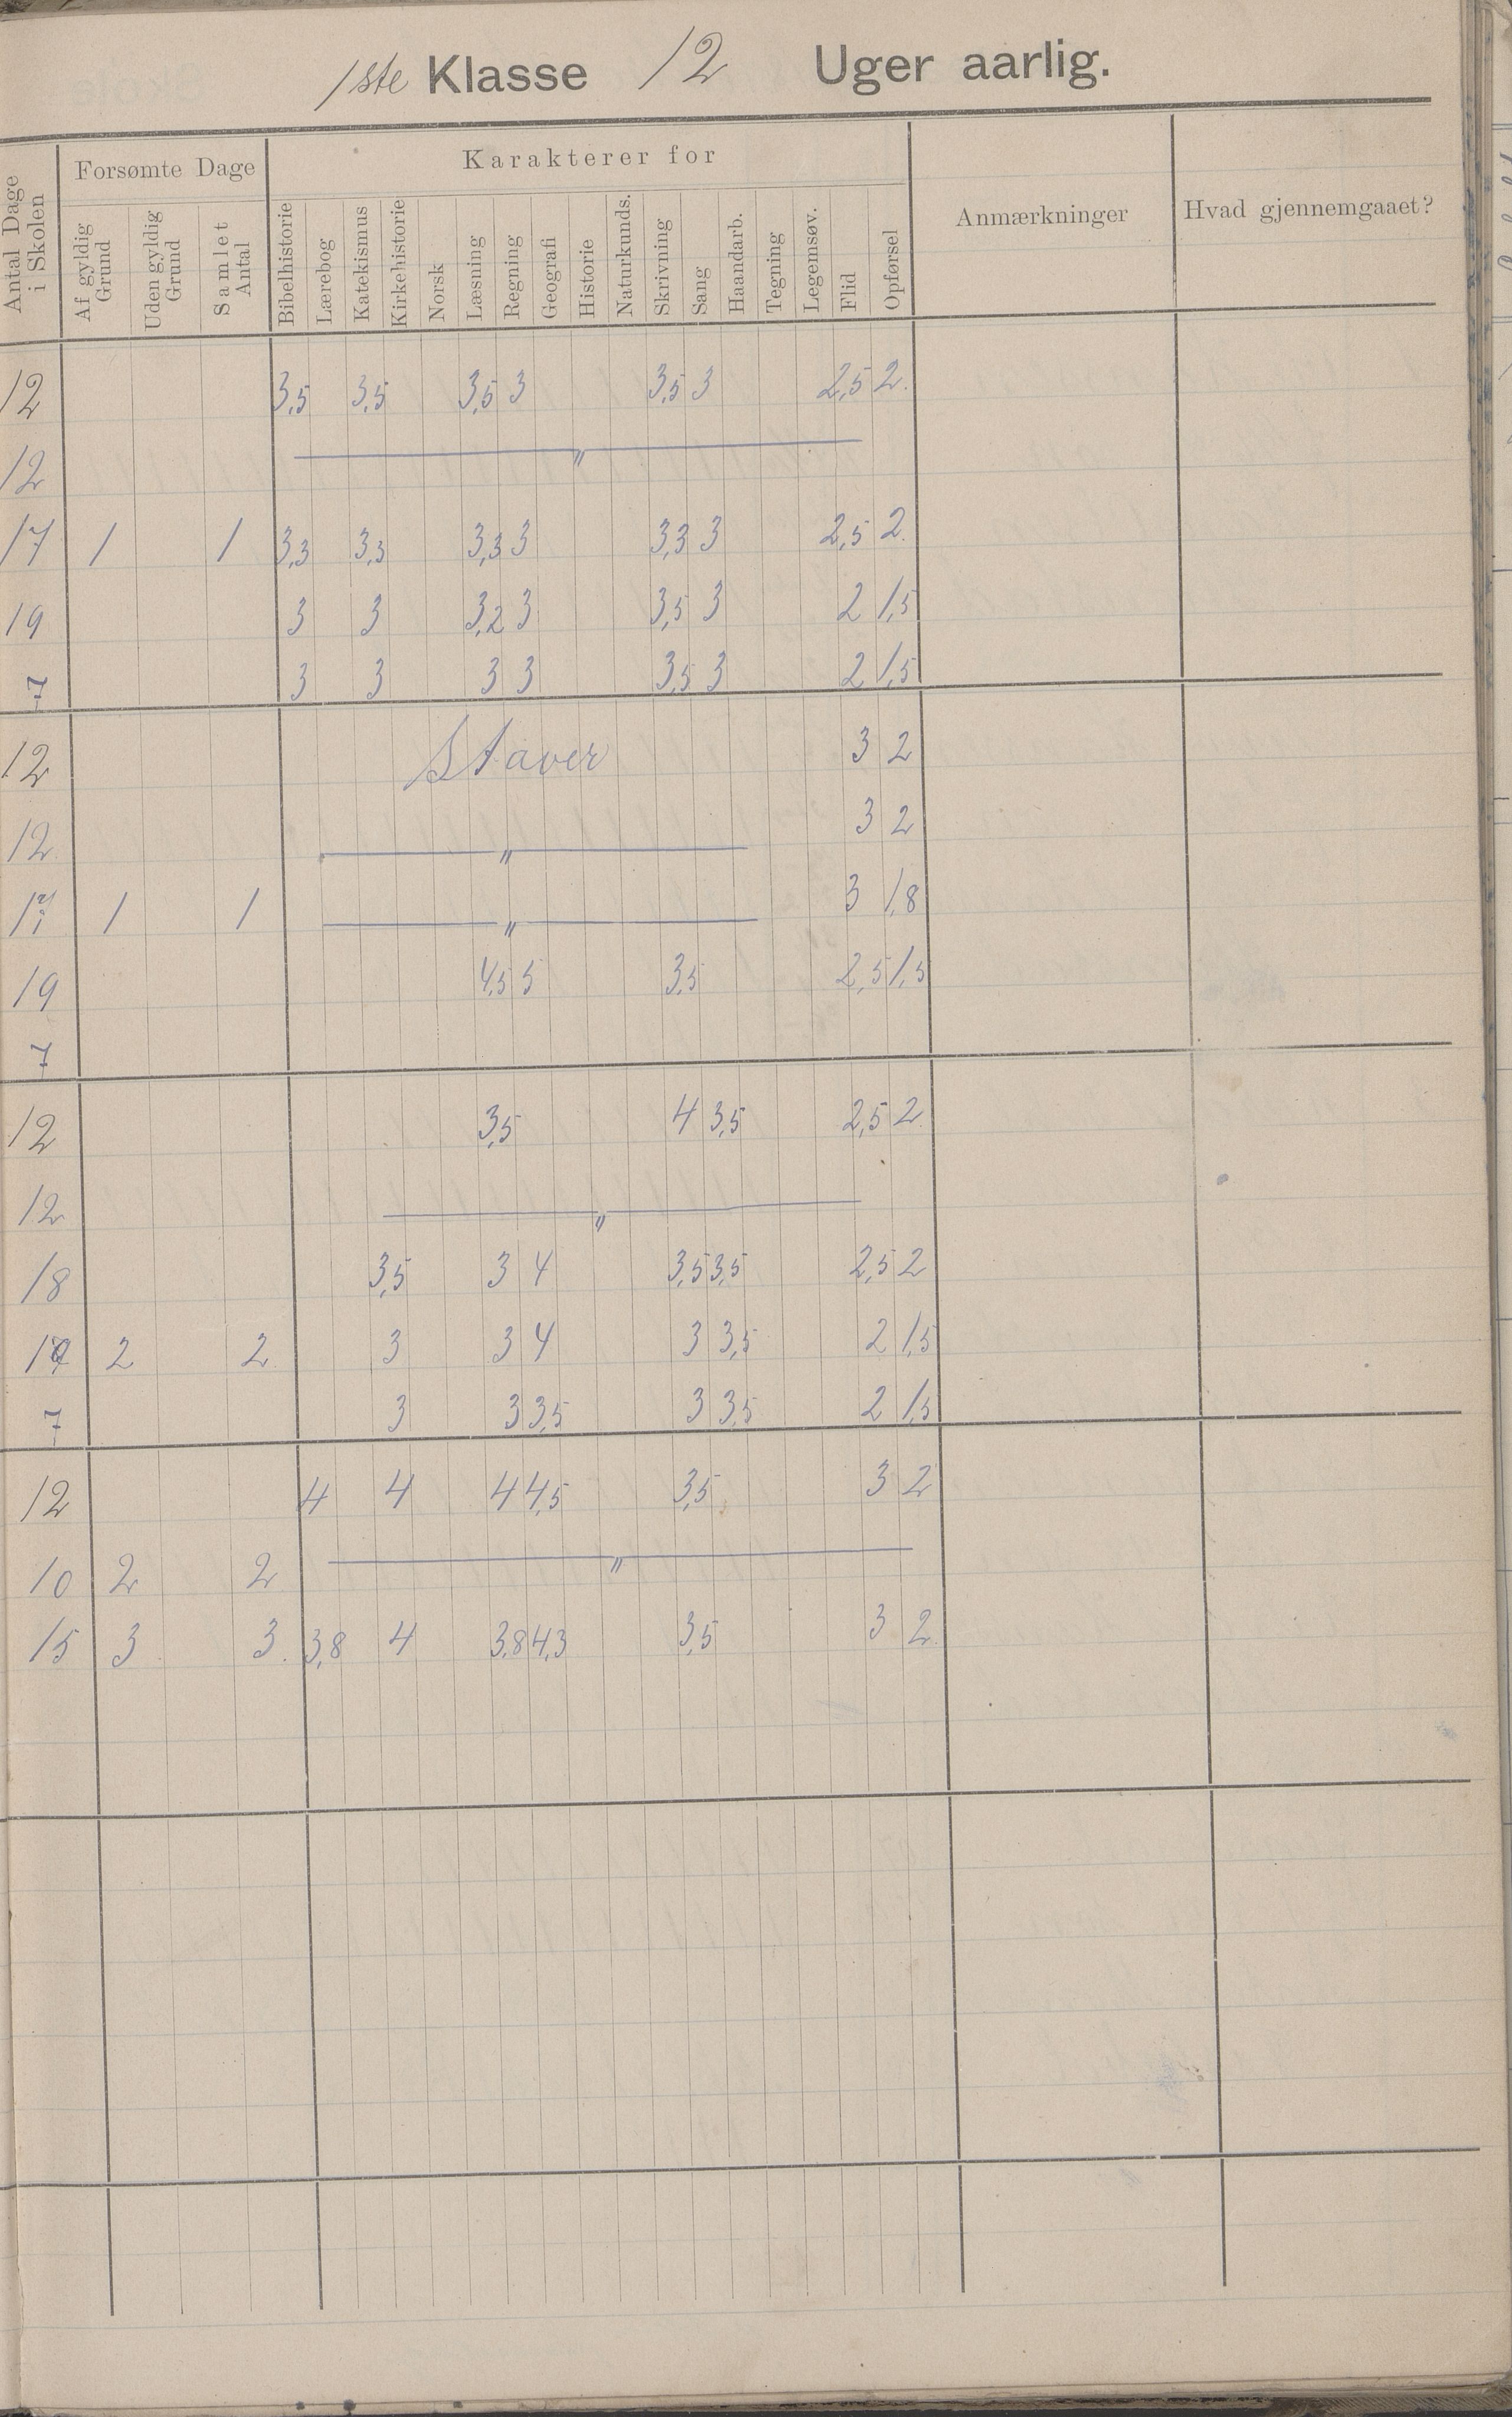 1ste Klasse 12 Uger aarlig.
Antal Dage i Skolen
Forsømte Dage
Af gyldig Grund
Uden gyldig Grund
Samlet Antal
Karakterer for
Bibelhistorie
Lærebog
Katekismus
Kirkehistorie
Norsk
Læsning
Regning
Geografi
Historie
Naturkunds.
Skrivning
Sang
Haandarb.
Tegning
Legemsøv.
Flid
Opførsel
Anmærkninger
Hvad gjennemgaaet?
12 3,5 3,5 3,5 3 3,5 3 2,5 2.
12 — " —
17 1 1 3,3 3,3 3,3 3 3,3 3 2,5 2.
19 3 3 3,2 3 3,5 3 2 1,5
7 3 3 3 3 3,5 3 2 1,5
12 Staver 3 2
12 — " — 3 2
17 1 1 — " — 3 1,8
19 4,5 5 3,5 2,5 1,5
7
12 3,5 4 3,5 2,5 2
12 — " —
18 3,5 3 4 3,5 3,5 2,5 2
2 2 3 3 4 3 3,5 2 1,5
7 3 3 3,5 3 3,5 2 1,5
12 4 4 4 4,5 3,5 3 2
10 2 2 — " —
15 3 3. 3,8 4 3,8 4,3 3,5 3 2.